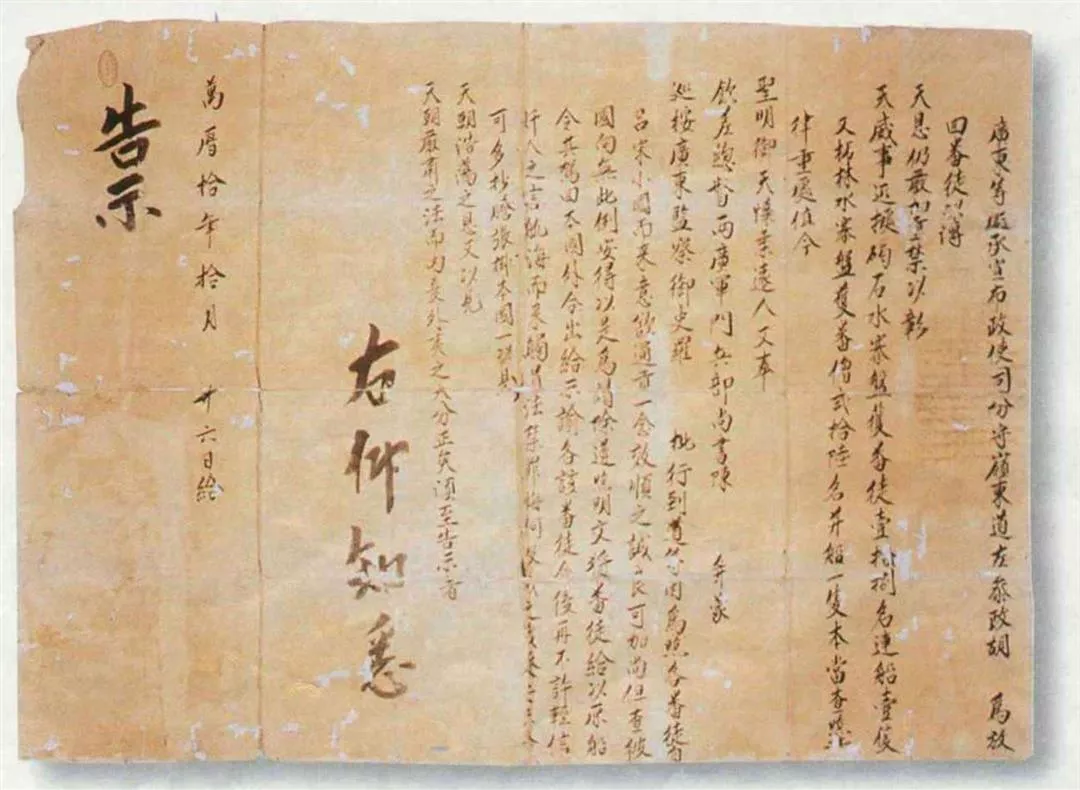 廣東等處承宣布政使司分守嶺東道左參政胡 爲放
回番徒以溥
天恩仍嚴加禁以彰
天威事近據碣石水寨盤獲番徒壹拾捌名連船壹隻
又柘林水寨盤獲番僧貳拾陸名并船一隻本當查照
律重處值今
聖明御天懷柔遠人又奉
欽差總督兩廣軍門兵部尚書陳 并蒙
巡按廣東監察御史羅 批行到道等因爲照各番徒皆
呂宋小國而來意欲通市一念效順之誠良可加尚但查彼
國向無此例安得以是爲請除道照明文將番徒給以原船
令其駕回本國外合出給示諭各該番徒今後再不許輕信
奸人之言航海而來觸冒法禁罪悔何及
可多抄謄張掛本國一
天朝浩蕩之恩又以見
天朝嚴肅之法而內夏外夷之大分正矣須至告示者
右仰知悉
萬曆拾年拾月 廿六日給
告示